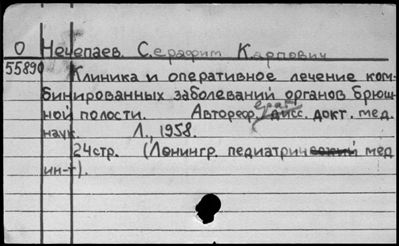 О Нечепаев Серафим Карпович
55890 Клиника и оперативное лечение ком-
бинированных заболеваний органов брюш-
ной полости. Автореф. дисс. докт. мед.
наук. Л., 1958.
24стр. (Ленингр. педиатрич мед
ин-т).